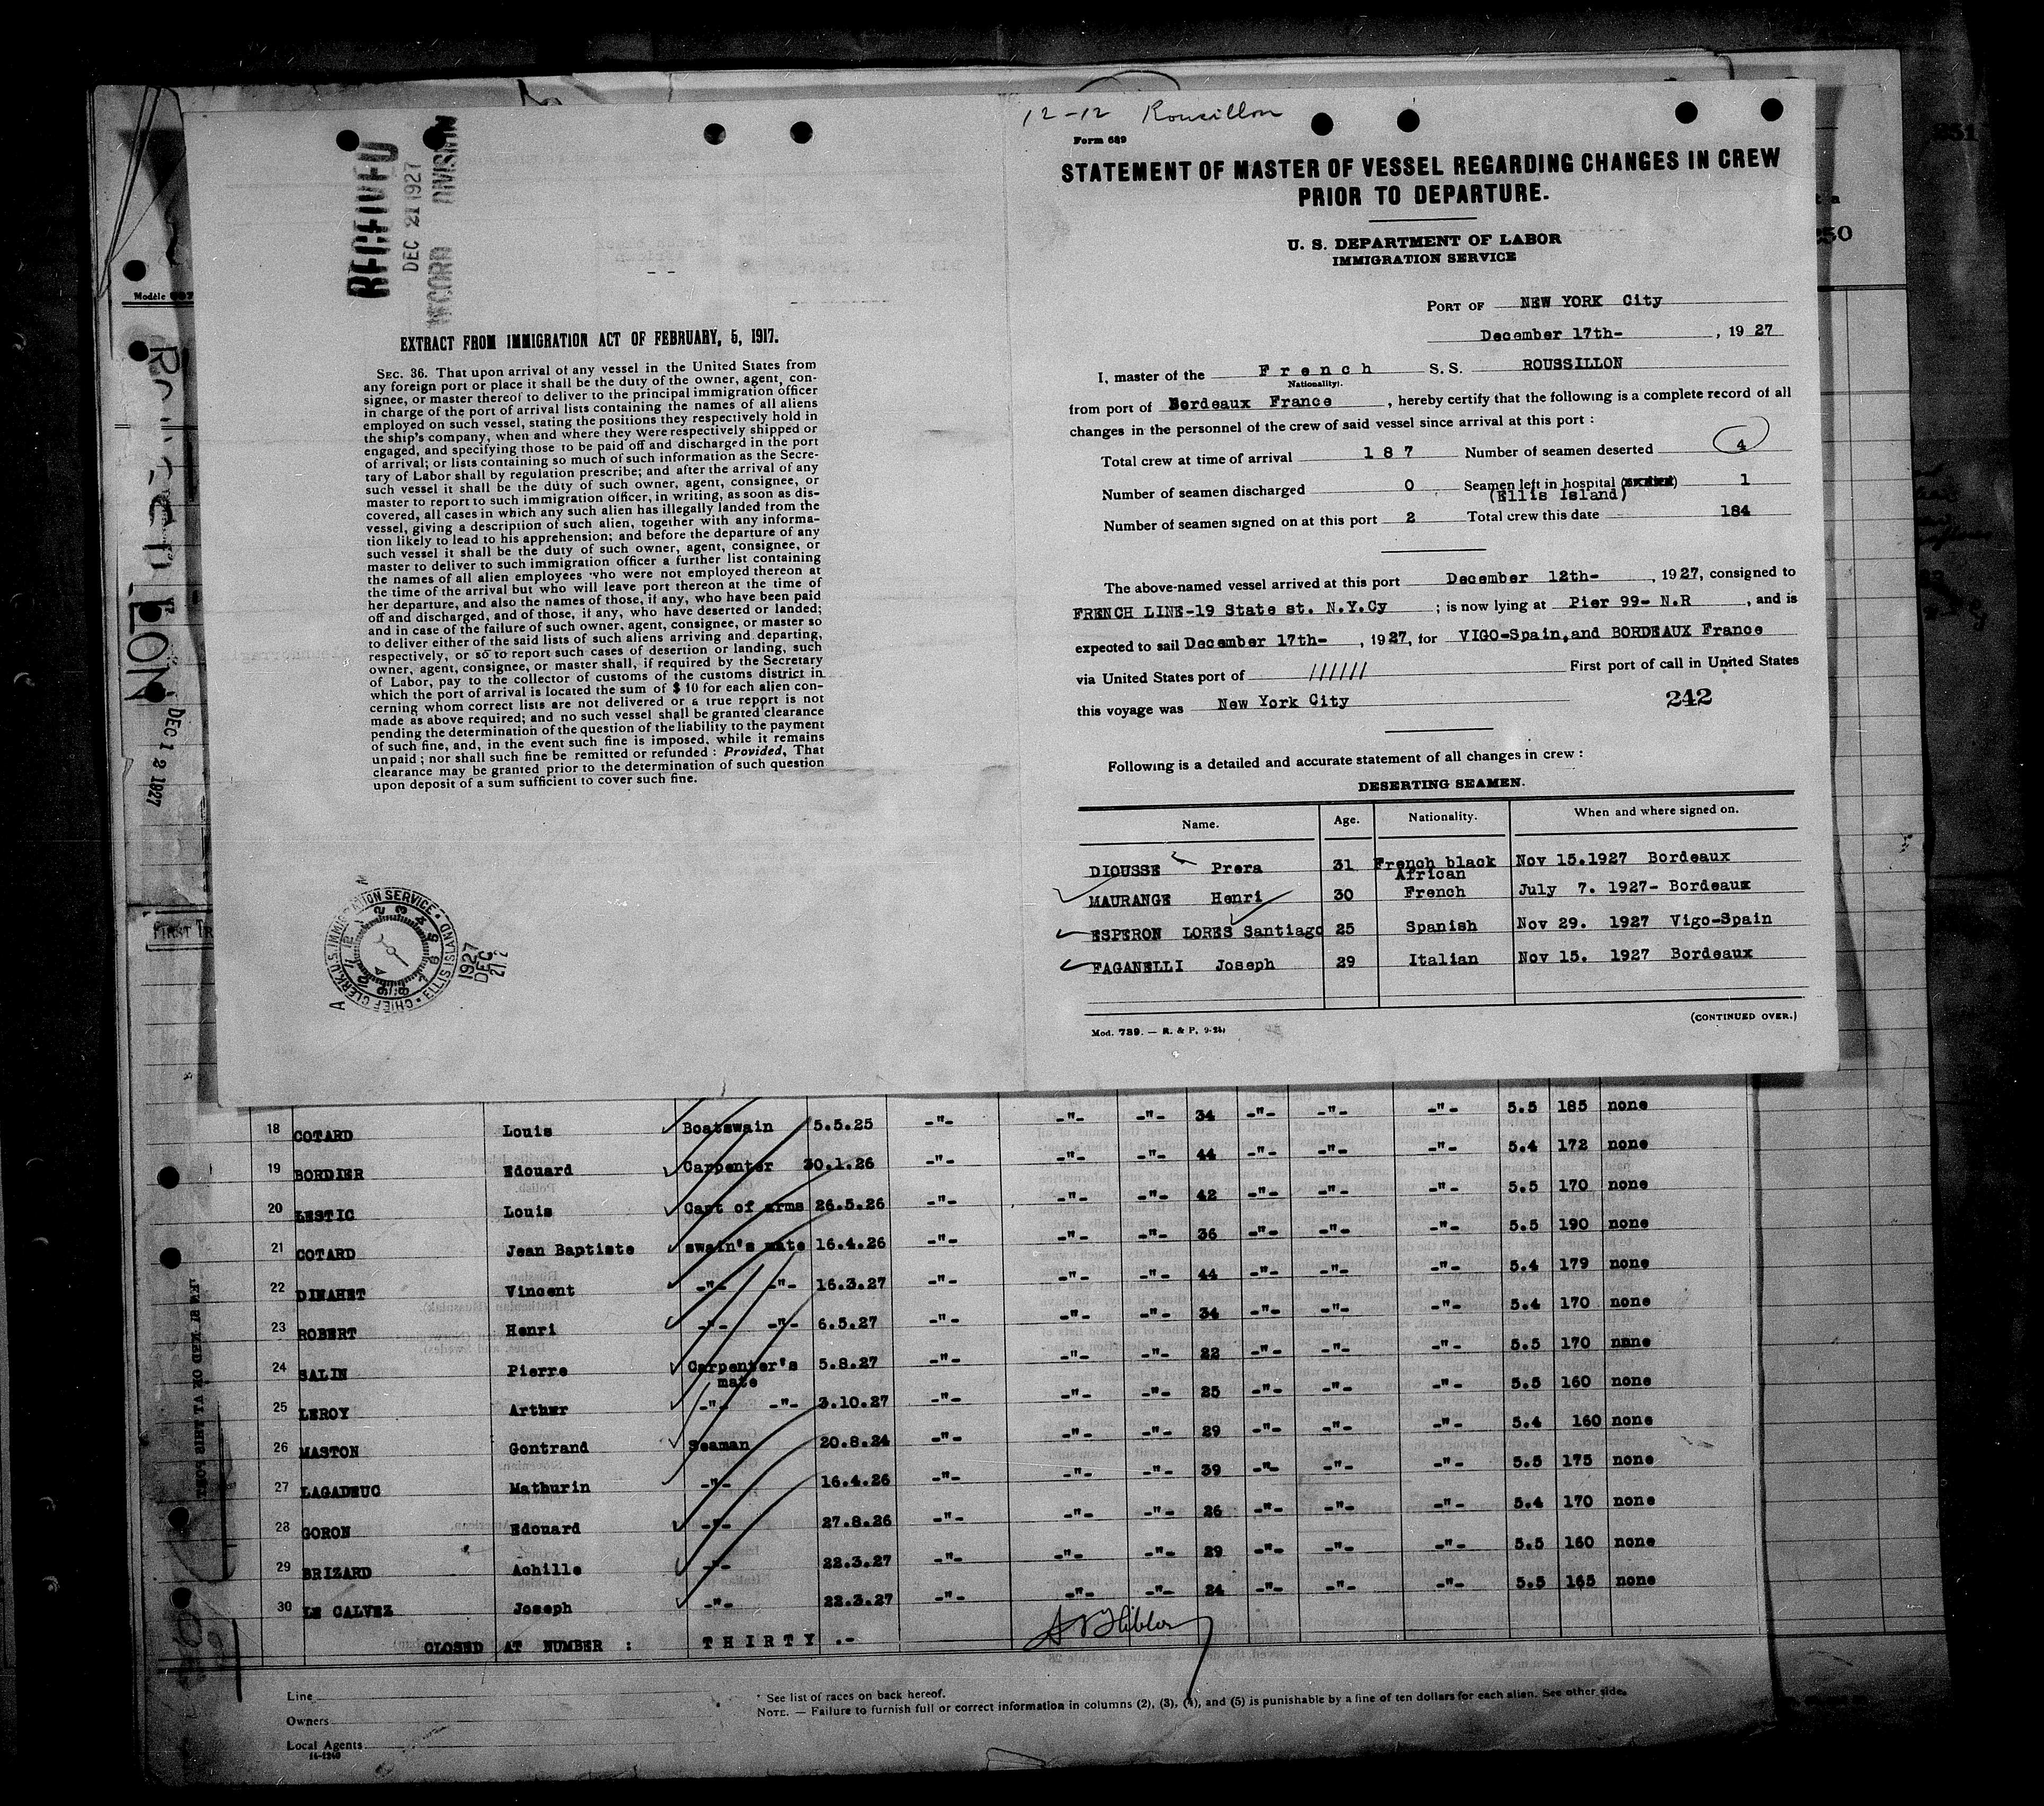 RECEIVED
DEC 21 1927
RECORD DIVISION
EXTRACT FROM IMMIGRATION ACT OF FEBRUARY, 5, 1917.
SEC. 36. That upon arrival of any vessel in the United States from
any foreign port or place it shall be the duty of the owner, agent, con-
signee, or master thereof to deliver to the principal immigration officer
in charge of the port of arrival lists containing the names of all aliens
employed on such vessel, stating the positions they respectively hold in
the ship's company, when and where they were respectively shipped or
engaged, and specifying those to be paid off and discharged in the port
of arrival; or lists containing so much of such information as the Secre-
tary of Labor shall by regulation prescribe; and after the arrival of any
such vessel it shall be the duty of such owner, agent, consignee, or
master to report to such immigration officer, in writing, as soon as dis-
covered, all cases in which any such alien has illegally landed from the
vessel, giving a description of such alien, together with any informa-
tion likely to lead to his apprehension; and before the departure of any
such vessel it shall be the duty of such owner, agent, consignee, or
master to deliver to such immigration officer a further list containing
the names of all alien employees who were not employed thereon at
the time of the arrival but who will leave port thereon at the time of
her departure, and also the names of those, if any, who have been paid
off and discharged, and of those, if any, who have deserted or landed;
and in case of the failure of such owner, agent, consignee, or master so
to deliver either of the said lists of such aliens arriving and departing,
respectively, or so to report such cases of desertion or landing, such
owner, agent, consignee, or master shall, if required by the Secretary
of Labor, pay to the collector of customs of the customs district in
which the port of arrival is located the sum of $ 10 for each alien con-
cerning whom correct lists are not delivered or a true report is not
made as above required; and no such vessel shall be granted clearance
pending the determination of the question of the liability to the payment
of such fine, and, in the event such fine is imposed, while it remains
unpaid; nor shall such fine be remitted or refunded : Provided, That
clearance may be granted prior to the determination of such question
upon deposit of a sum sufficient to cover such fine.
CHIEF CLERK U.S. IMMIGRATION SERVICE ELLIS ISLAND
1927
DEC
21
12-12 Rousillon
Form 689
STATEMENT OF MASTER OF VESSEL REGARDING CHANGES IN CREW
PRIOR TO DEPARTURE.
U. S. DEPARTMENT OF LABOR
IMMIGRATION SERVICE
PORT OF NEW YORK City
December 17th- , 19 27
I, master of the French S. S. ROUSSILLON
Nationality).
from port of Bordeaux France , hereby certify that the following is a complete record of all
changes in the personnel of the crew of said vessel since arrival at this port :
Total crew at time of arrival 187 Number of seamen deserted 4
Number of seamen discharged 0 Seamen left in hospital 1
(Ellis Island)
Number of seamen signed on at this port 2 Total crew this date 184
The above-named vessel arrived at this port December 12th- , 1927, consigned to
FRENCH LINE-19 State st. N.Y.Cy ; is now lying at Pier 99- N.R , and is
expected to sail December 17th- , 1927, for VIGO-Spain,and BORDEAUX France
via United States port of ////// First port of call in United States
this voyage was New York City 242
Following is a detailed and accurate statement of all changes in crew :
DESERTING SEAMEN.
Name. Age. Nationality. When and where signed on.
DIOUSSE Prera 31 French black Nov 15.1927 Bordeaux
African
MAURANGE Henri 30 French July 7. 1927- Bordeaux
ESPERON LORES Santiago 25 Spanish Nov 29. 1927 Vigo-Spain
FAGANELLI Joseph 29 Italian Nov 15. 1927 Bordeaux
Mod. 789. — R. & P. 9-25. (CONTINUED OVER.)
Modèle
DEC 12 1927
250
251
18 COTARD Louis Boatswain 5.5.25 -"- -"- -"- 34 -"- -"- -"- 5.5 185 none
19 BORDIER Edouard Carpenter 30.1.26 -"- -"- -"- 44 -"- -"- -"- 5.4 172 none
20 LESTIC Louis Capt of arms 26.5.26 -"- -"- -"- 42 -"- -"- -"- 5.5 170 none
21 COTARD Jean Baptiste swain's mate 16.4.26 -"- -"- -"- 36 -"- -"- -"- 5.5 190 none
22 DINAHET Vincent -"- -"- 16.3.27 -"- -"- -"- 44 -"- -"- -"- 5.4 179 none
23 ROBERT Henri -"- -"- 6.5.27 -"- -"- -"- 34 -"- -"- -"- 5.4 170 none
24 SALIN Pierre Carpenter's 5.8.27 -"- -"- -"- 22 -"- -"- -"- 5.5 170 nane
mate
25 LEROY Arthur -"- -"- 3.10.27 -"- -"- -"- 25 -"- -"- -"- 5.5 160 none
26 MASTON Gontrand Seaman 20.8.24 -"- -"- -"- 29 -"- -"- -"- 5.4 160 none
27 LAGADEUC Mathurin -"- 16.4.26 -"- -"- -"- 39 -"- -"- -"- 5.5 175 none
28 GORON Edouard -"- 27.8.26 -"- -"- -"- 26 -"- -"- -"- 5.4 170 none
29 BRIZARD Achille -"- 22.3.27 -"- -"- -"- 29 -"- -"- -"- 5.5 160 none
30 LE CALVEZ Joseph -"- 22.3.27 -"- -"- -"- 24 -"- -"- -"- 5.5 165 none
CLOSED AT NUMBER : THIRTY .-
Line
Owners
Local Agents
14-1240
* See list of races on back hereof.
NOTE. — Failure to furnish full or correct information in columns (2), (3), (4), and (5) is punishable by a fine of ten dollars for each alien. See other side.